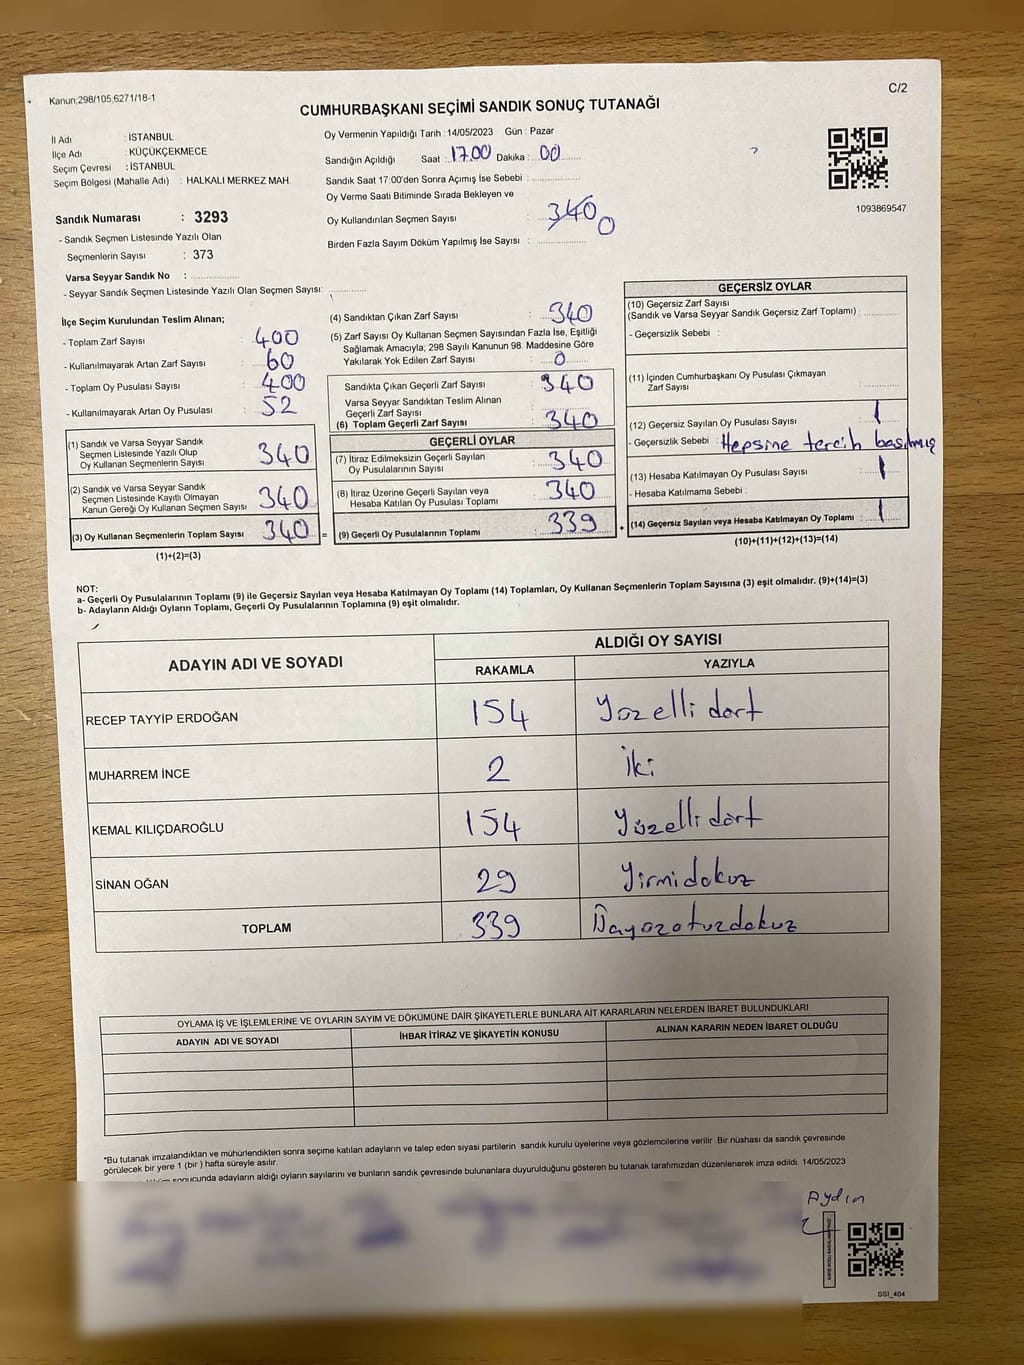 Kanun;298/105;6271/18-1
C/2
CUMHURBAŞKANI SEÇİMİ SANDIK SONUÇ TUTANAĞI
İl Adı : İSTANBUL
İlçe Adı : KÜÇÜKÇEKMECE
Seçim Çevresi : İSTANBUL
Seçim Bölgesi (Mahalle Adı) : HALKALI MERKEZ MAH.
Sandık Numarası : 3293
- Sandık Seçmen Listesinde Yazılı Olan
Seçmenlerin Sayısı : 373
Varsa Seyyar Sandık No : ....................
- Seyyar Sandık Seçmen Listesinde Yazılı Olan Seçmen Sayısı: ...............
Oy Vermenin Yapıldığı Tarih : 14/05/2023 Gün : Pazar
Sandığın Açıldığı Saat : 17.00 Dakika : 00
Sandık Saat 17:00'den Sonra Açımış İse Sebebi : ....................
Oy Verme Saati Bitiminde Sırada Bekleyen ve
Oy Kullandırılan Seçmen Sayısı : 340 0
Birden Fazla Sayım Döküm Yapılmış İse Sayısı : ....................
1093869547
İlçe Seçim Kurulundan Teslim Alınan;
- Toplam Zarf Sayısı : 400
- Kullanılmayarak Artan Zarf Sayısı : 60
- Toplam Oy Pusulası Sayısı : 400
- Kullanılmayarak Artan Oy Pusulası : 52
(1) Sandık ve Varsa Seyyar Sandık
Seçmen Listesinde Yazılı Olup
Oy Kullanan Seçmenlerin Sayısı : 340
(2) Sandık ve Varsa Seyyar Sandık
Seçmen Listesinde Kayıtlı Olmayan
Kanun Gereği Oy Kullanan Seçmen Sayısı : 340
(3) Oy Kullanan Seçmenlerin Toplam Sayısı : 340 =
(1)+(2)=(3)
(4) Sandıktan Çıkan Zarf Sayısı : 340
(5) Zarf Sayısı Oy Kullanan Seçmen Sayısından Fazla İse, Eşitliği
Sağlamak Amacıyla, 298 Sayılı Kanunun 98. Maddesine Göre
Yakılarak Yok Edilen Zarf Sayısı : 0
Sandıkta Çıkan Geçerli Zarf Sayısı : 340
Varsa Seyyar Sandıktan Teslim Alınan
Geçerli Zarf Sayısı : ....................
(6) Toplam Geçerli Zarf Sayısı : 340
GEÇERLİ OYLAR
(7) İtiraz Edilmeksizin Geçerli Sayılan
Oy Pusulalarının Sayısı : 340
(8) İtiraz Üzerine Geçerli Sayılan veya
Hesaba Katılan Oy Pusulası Toplamı : 340
(9) Geçerli Oy Pusulalarının Toplamı : 339 +
GEÇERSİZ OYLAR
(10) Geçersiz Zarf Sayısı
(Sandık ve Varsa Seyyar Sandık Geçersiz Zarf Toplamı) : ...............
- Geçersizlik Sebebi :
(11) İçinden Cumhurbaşkanı Oy Pusulası Çıkmayan
Zarf Sayısı : ...............
(12) Geçersiz Sayılan Oy Pusulası Sayısı : 1
- Geçersizlik Sebebi : Hepsine tercih basılmış
(13) Hesaba Katılmayan Oy Pusulası Sayısı : 1
- Hesaba Katılmama Sebebi :
(14) Geçersiz Sayılan veya Hesaba Katılmayan Oy Toplamı : 1
(10)+(11)+(12)+(13)=(14)
NOT:
a- Geçerli Oy Pusulalarının Toplamı (9) ile Geçersiz Sayılan veya Hesaba Katılmayan Oy Toplamı (14) Toplamları, Oy Kullanan Seçmenlerin Toplam Sayısına (3) eşit olmalıdır. (9)+(14)=(3)
b- Adayların Aldığı Oyların Toplamı, Geçerli Oy Pusulalarının Toplamına (9) eşit olmalıdır.
ADAYIN ADI VE SOYADI
ALDIĞI OY SAYISI
RAKAMLA YAZIYLA
RECEP TAYYİP ERDOĞAN 154 Yüzelli dört
MUHARREM İNCE 2 İki
KEMAL KILIÇDAROĞLU 154 Yüzelli dört
SİNAN OĞAN 29 Yirmidokuz
TOPLAM 339
OYLAMA İŞ VE İŞLEMLERİNE VE OYLARIN SAYIM VE DÖKÜMÜNE DAİR ŞİKAYETLERLE BUNLARA AİT KARARLARIN NELERDEN İBARET BULUNDUKLARI
ADAYIN ADI VE SOYADI İHBAR İTİRAZ VE ŞİKAYETİN KONUSU ALINAN KARARIN NEDEN İBARET OLDUĞU
*Bu tutanak imzalandıktan ve mühürlendikten sonra seçime katılan adayların ve talep eden siyasi partilerin sandık kurulu üyelerine veya gözlemcilerine verilir. Bir nüshası da sandık çevresinde
görülecek bir yere 1 (bir ) hafta süreyle asılır.
sonucunda adayların aldığı oyların sayılarını ve bunların sandık çevresinde bulunanlara duyurulduğunu gösteren bu tutanak tarafımızdan düzenlenerek imza edildi. 14/05/2023
Aydın
SSI_404